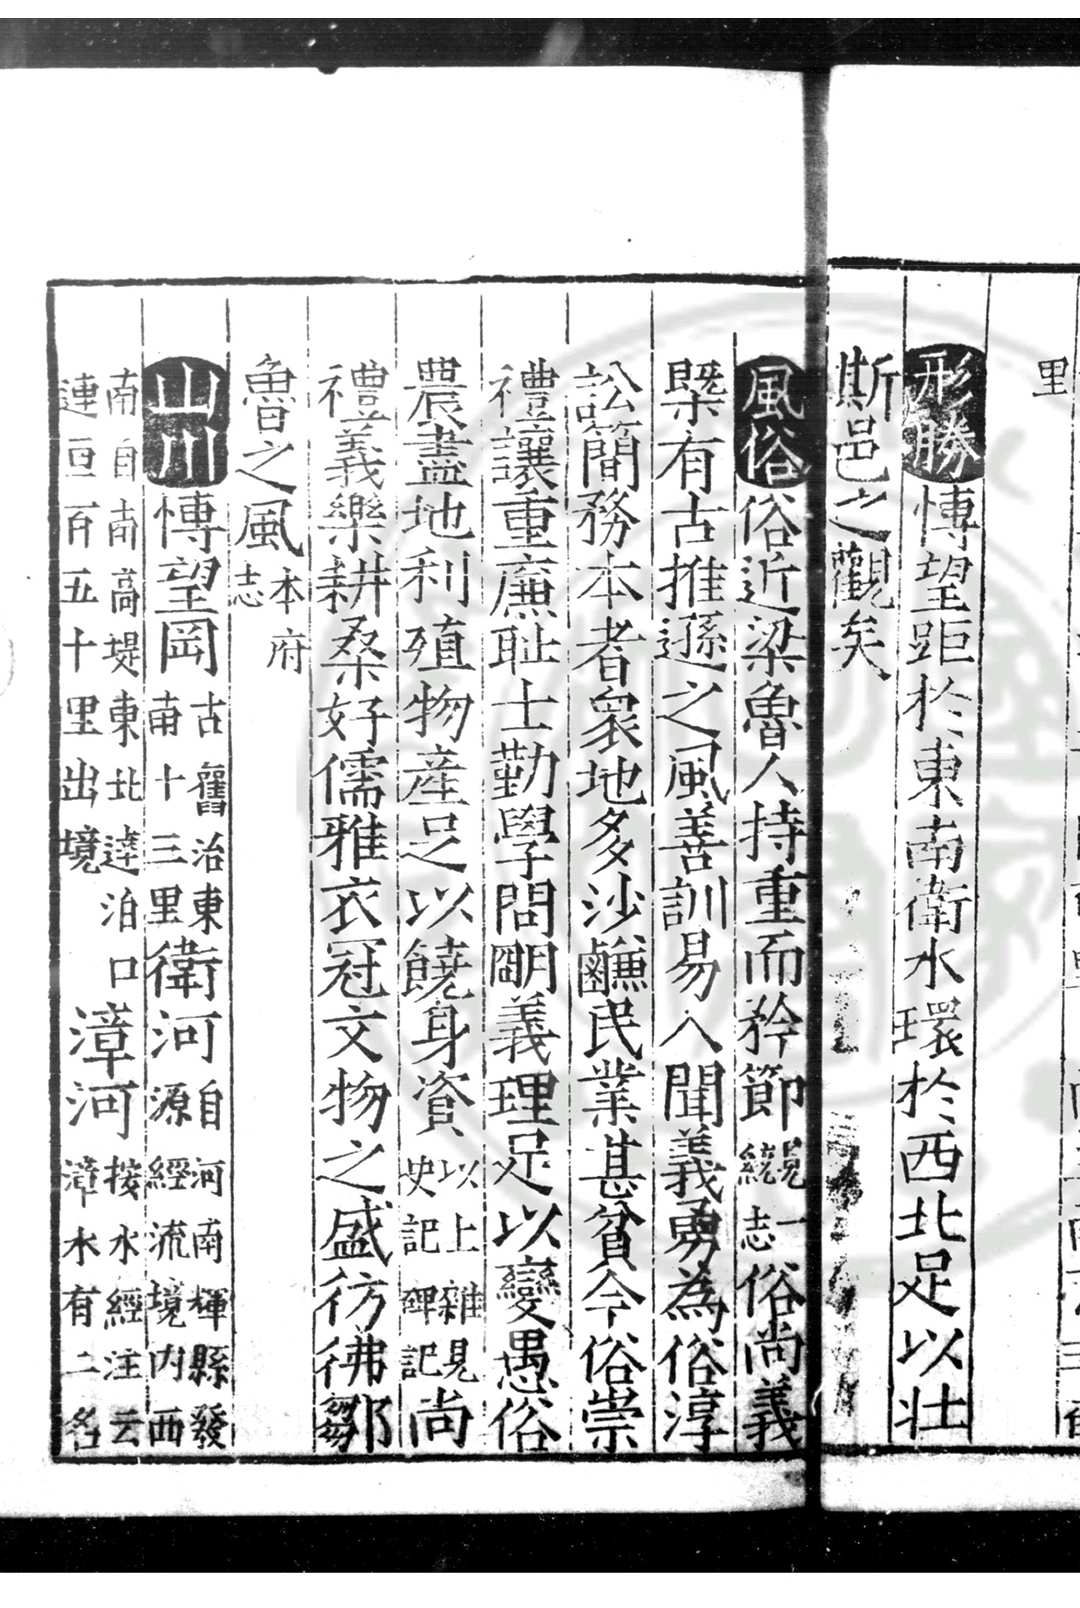 里
形勝慱望距於東南衛水環於西北足以壮
斯邑之觀矣
風俗俗近梁魯人持重而矜節見一統志俗尚義
槩有古推遜之風善訓易入聞義勇為俗淳
訟簡務本者衆地多沙鹻民業甚貧今俗崇
禮讓重廉耻士勤學問閘明義理足以變愚俗
農盡地利殖物產足以饒身資以上雜見史記碑記尚
禮義樂耕桑好儒雅衣冠文物之盛彷彿鄒
魯之風本府志
山川慱望岡古舊治東南十三里衛河自河南輝縣發源經流境内西
南自南高堤東北達泊口連亘百五十里出境漳河按水經注云漳水有二名